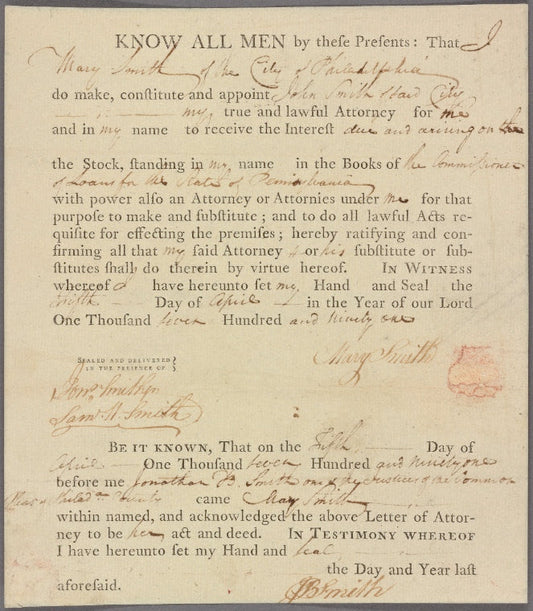 KNOW ALL MEN by theſe Preſents: That I
Mary Smith of the City of Philadelphia
do make, conſtitute and appoint John Smith of said City
my, true and lawful Attorney for me
and in my name to receive the Intereſt due and arising on the
the Stock, ſtanding in my name in the Books of the Commissioner
of Loans for the State of Pennsylvania
with power alſo an Attorney or Attornies under me for that
purpoſe to make and ſubſtitute; and to do all lawful Acts re-
quiſite for effecting the premiſes; hereby ratifying and con-
firming all that my ſaid Attorney or his ſubſtitute or ſub-
ſtitutes ſhall do therein by virtue hereof. IN WITNESS
whereof I have hereunto ſet my Hand and Seal the
fifth Day of April in the Year of our Lord
One Thouſand seven Hundred and Ninety one
SEALED AND DELIVERED
IN THE PRESENCE OF
Mary Smith
Smith
Saml. H. Smith
BE IT KNOWN, That on the Fifth Day of
April One Thouſand seven Hundred and Ninety one
before me Jonathan B. Smith one of the Justices of the Common
Pleas County came Mary Smith
within named, and acknowledged the above Letter of Attor-
ney to be her act and deed. IN TESTIMONY WHEREOF
I have hereunto ſet my Hand and seal
the Day and Year laſt
aforeſaid. JB Smith